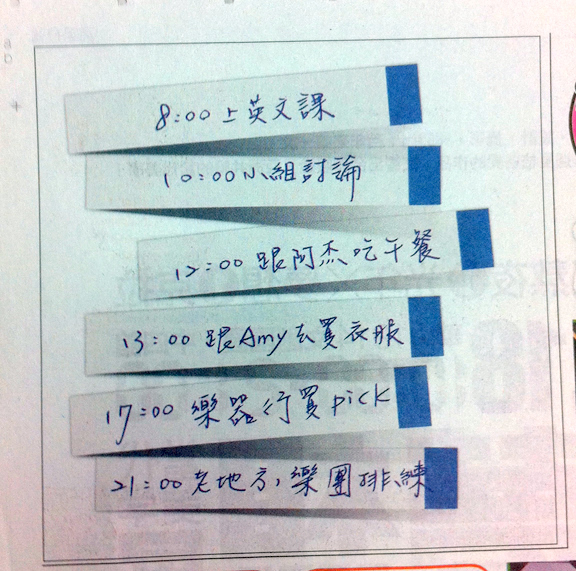 8:00 上英文課
10:00 小組討論
12:00 跟阿杰吃午餐
13:00 跟Amy去買衣服
17:00 樂器行買pick
21:00 老地方,樂團排練